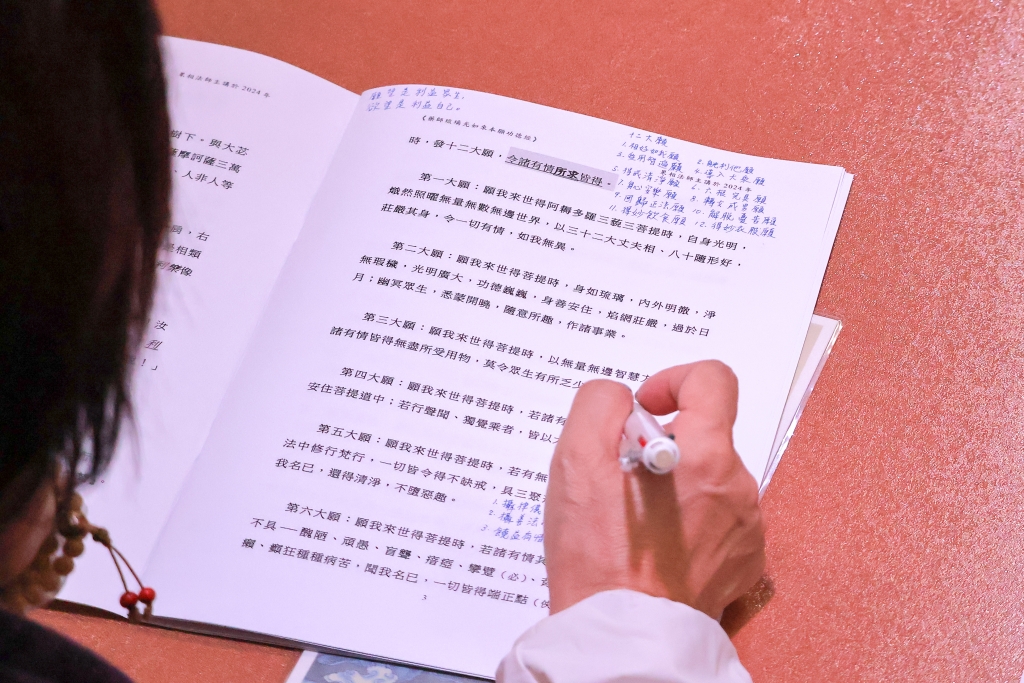 果柏法師主講於 2024 年
樹下。與大苾
薩摩訶薩三萬
、人非人等
右
是相類
像
汝
！」
願望是利益眾生。
欲望是利益自己。
《藥師琉璃光如來本願功德經》
果柏法師主講於 2024 年
十二大願
1. 相好如我願
3. 受用智遍願
4. 導入大乘願
5. 得戒清淨願
6. 六根完具願
7. 身心安樂願
8. 轉女成男願
9. 回歸正法願
10. 解脫憂苦願
11. 得妙飲食願
12. 得妙衣服願
時，發十二大願，令諸有情所求皆得。
第一大願：願我來世得阿耨多羅三藐三菩提時，自身光明，
熾然照曜無量無數無邊世界，以三十二大丈夫相、八十隨形好，
莊嚴其身，令一切有情，如我無異。
第二大願：願我來世得菩提時，身如琉璃，內外明徹，淨
無瑕穢，光明廣大，功德巍巍，身善安住，焰網莊嚴，過於日
月；幽冥眾生，悉蒙開曉，隨意所趣，作諸事業。
第三大願：願我來世得菩提時，以無量無邊智慧方
諸有情皆得無盡所受用物，莫令眾生有所乏少
第四大願：願我來世得菩提時，若諸有
安住菩提道中；若行聲聞、獨覺乘者，皆以大
第五大願：願我來世得菩提時，若有無
法中修行梵行，一切皆令得不缺戒，具三聚
我名已，還得清淨，不墮惡趣。
1. 攝律儀
2. 攝善法
3. 饒益有情
第六大願：願我來世得菩提時，若諸有情其
不具——醜陋、頑愚、盲聾、瘖瘂、攣躄（必）、
癩、癲狂種種病苦，聞我名已，一切皆得端正黠（俠
3